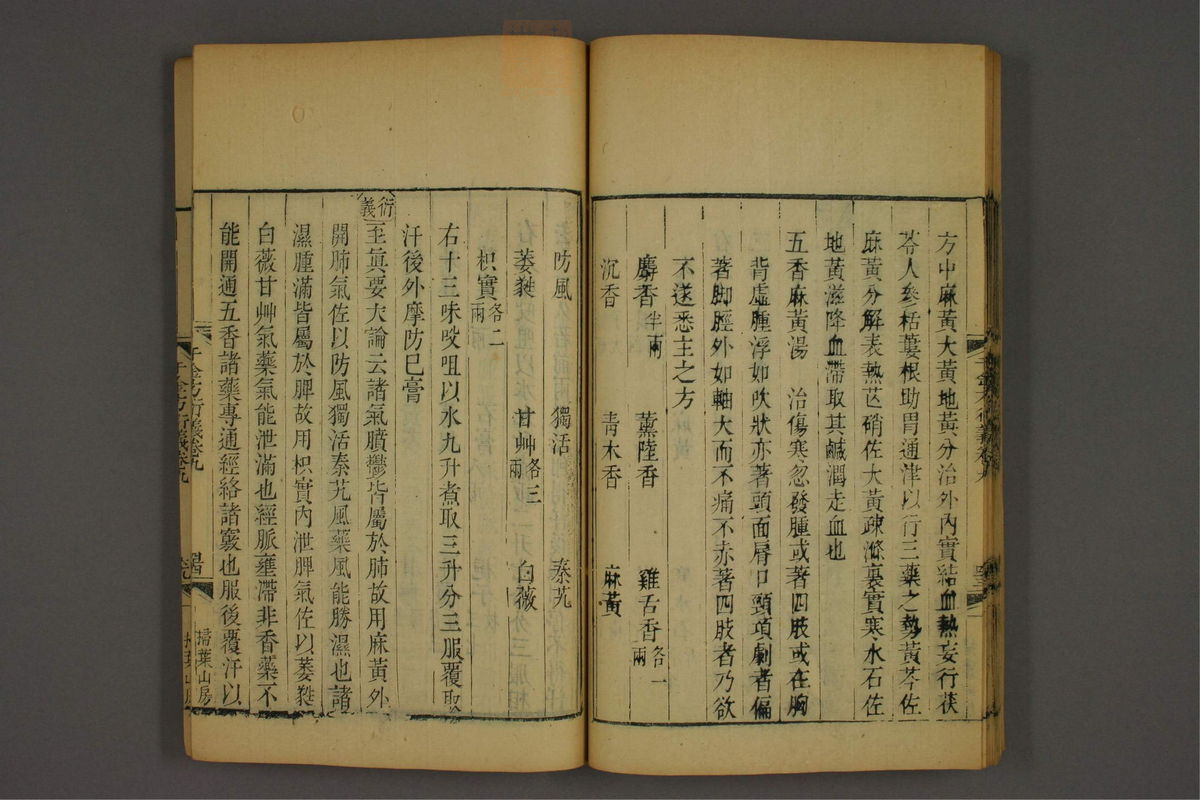 方中麻黃大黃地黃分治外內實結血熱妄行茯
苓人參栝蔞根助胃通津以行三藥之勢黃芩佐
麻黃分解表熱芒硝佐大黃疎滌裏實寒水石佐
地黃滋降血滯取其鹹潤走血也
五香麻黃湯 治傷寒忽發腫或著四肢或在胸
背虛腫浮如吹狀亦著頭面脣口頸項劇者偏
著脚脛外如軸大而不痛不赤著四肢者乃欲
不遂悉主之方
麝香半兩 薰陸香 雞舌香各一兩
沉香 青木香 麻黃
防風 獨活 秦艽
萎蕤 甘艸各三兩 白薇
枳實各二兩
右十三味㕮咀以水九升煮取三升分三服覆取
汗後外摩防已膏
衍義 至眞要大論云諸氣膹鬱皆屬於肺故用麻黃外
開肺氣佐以防風獨活秦艽風藥風能勝濕也諸
濕腫滿皆屬於脾故用枳實內泄脾氣佐以萎蕤
白薇甘艸氣藥氣能泄滿也經脈壅滯非香藥不
能開通五香諸藥專通經絡諸竅也服後覆汗以
千金方衍義卷九
掃葉山房